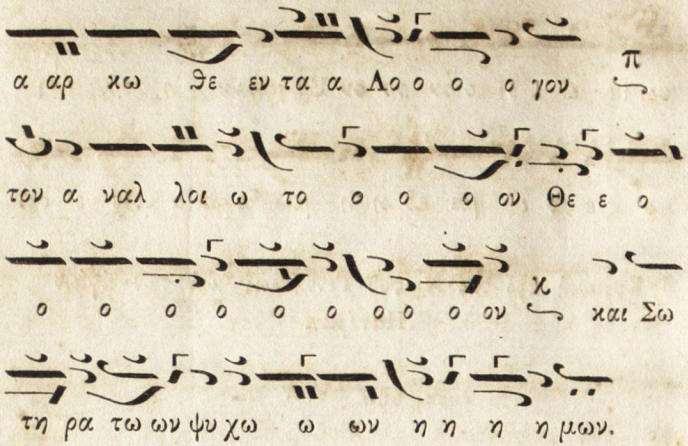 α αρ κω θε εν τα α Λο ο ο ο γον π
τον α ναλ λοι ω το ο ο ο ον Θε ε ο
ο ο ο ο ο ο ο ο ον κ και Σω
τη ρα τω ων ψυ χω ω ων η η η η μων.